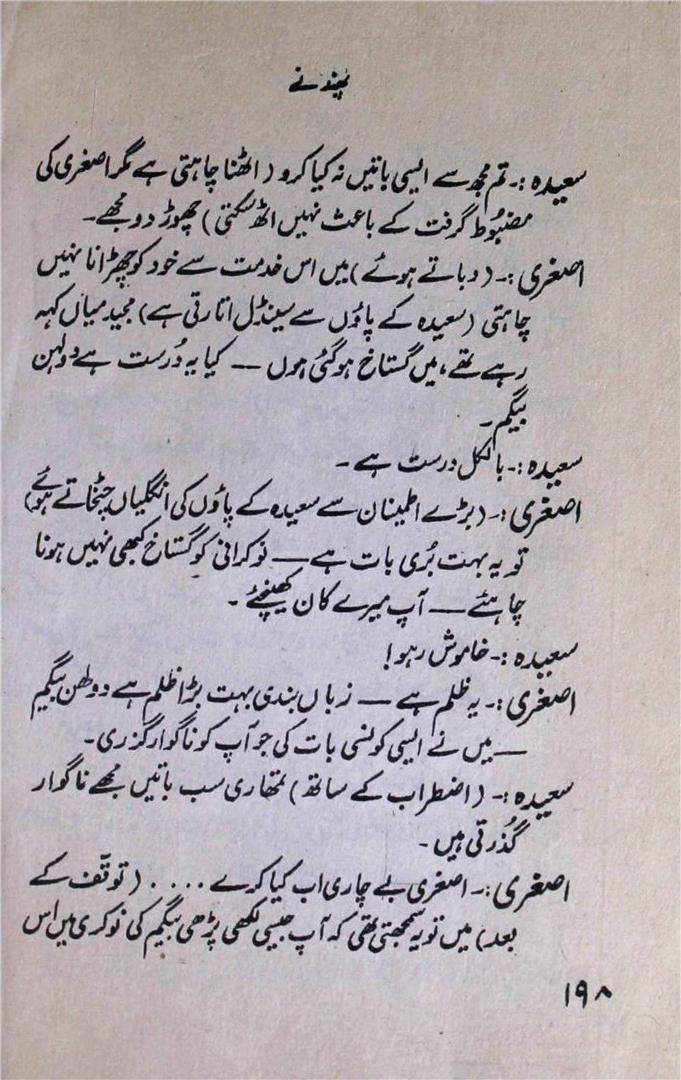 پھندنے
سعیدہ :۔ تم مجھ سے ایسی باتیں نہ کیا کرو ( اٹھنا چاہتی ہے مگر اصغری کی
مضبُوط گرفت کے باعث نہیں اٹھ سکتی ) چھوڑ دو مجھے۔
اصغری :۔ ( دباتے ہوئے ) میں اس خدمت سے خود کو چھڑانا نہیں
چاہتی ( سعیدہ کے پاؤں سے سینڈل اتارتی ہے ) مجید میاں کہہ
رہے تھے ، میں گستاخ ہوگئی ہوں — کیا یہ دُرست ہے دولہن
بیگم۔
سعیدہ :۔ بالکل درست ہے ۔
اصغری :۔ ( بڑے اطمینان سے سعیدہ کے پاؤں کی انگلیاں چٹخاتے ہوئے )
تو یہ بہت بُری بات ہے — نوکرانی کو گستاخ کبھی نہیں ہونا
چاہئے — آپ میرے کان کھینچئے ۔
سعیدہ :۔ خاموش رہو !
اصغری :۔ یہ ظلم ہے — زباں بندی بہت بڑا ظلم ہے دولھن بیگم
— میں نے ایسی کونسی بات کی جو آپ کو ناگوار گزری۔
سعیدہ :۔ ( اضطراب کے ساتھ ) تمھاری سب باتیں مجھے ناگوار
گُذرتی ہیں ۔
اصغری :۔ اصغری بے چاری اب کیا کرے .... ( توقّف کے
بعد ) میں تو یہ سمجھتی تھی کہ آپ جیسی لکھی پڑھی بیگم کی نوکری میں اس
۱۹۸